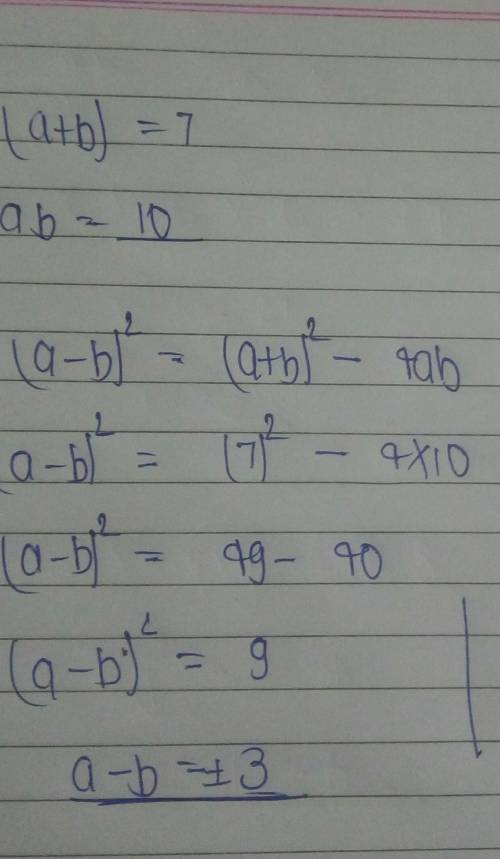 (a+b) = 7
ab = 10
(a-b)² = (a+b)² - 4ab
(a-b)² = (7)² - 4×10
(a-b)² = 49 - 40
(a-b)² = 9
a-b = ±3